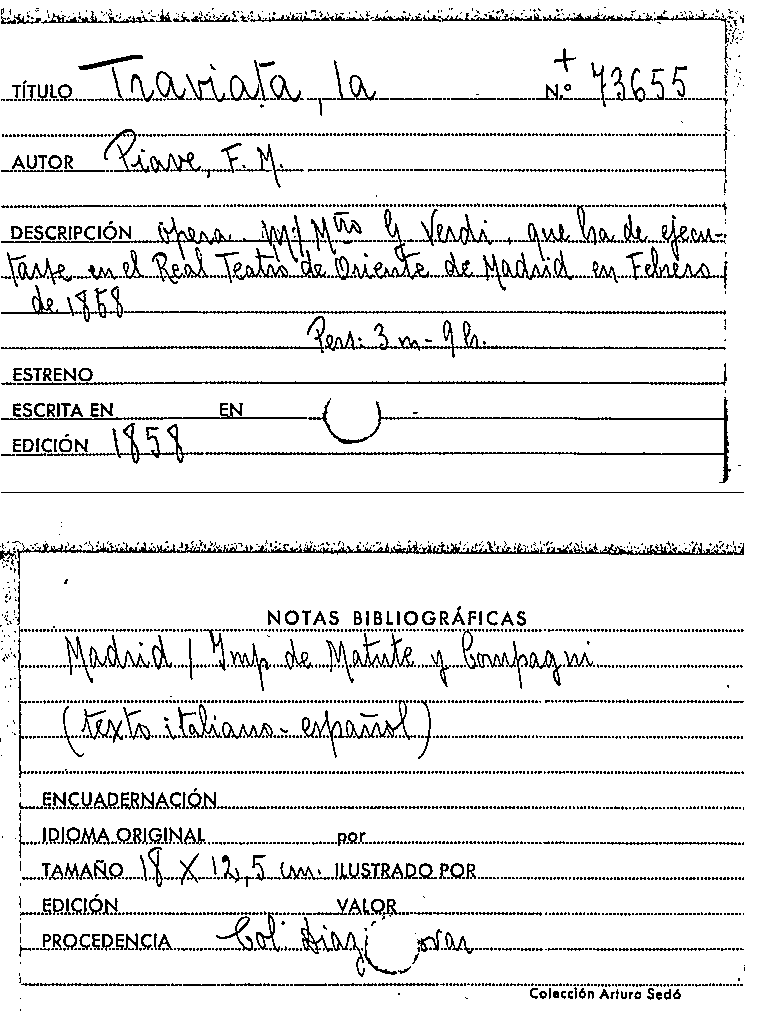 TÍTULO Traviata, la + N.º 73655
AUTOR Piave, F. M.
DESCRIPCIÓN ópera. m/ Mtro G Verdi, que ha de ejecu-
tarse en el Real Teatro de Oriente de Madrid en Febrero
de 1858
Pers: 3 m - 9 h.
ESTRENO
ESCRITA EN EN
EDICIÓN 1858
NOTAS BIBLIOGRÁFICAS
Madrid / Imp de Matute y Compagni
(texto italiano - español)
ENCUADERNACIÓN
IDIOMA ORIGINAL por
TAMAÑO 18 X 12,5 cm. ILUSTRADO POR
EDICIÓN VALOR
PROCEDENCIA Col. Díaz
Colección Arturo Sedó